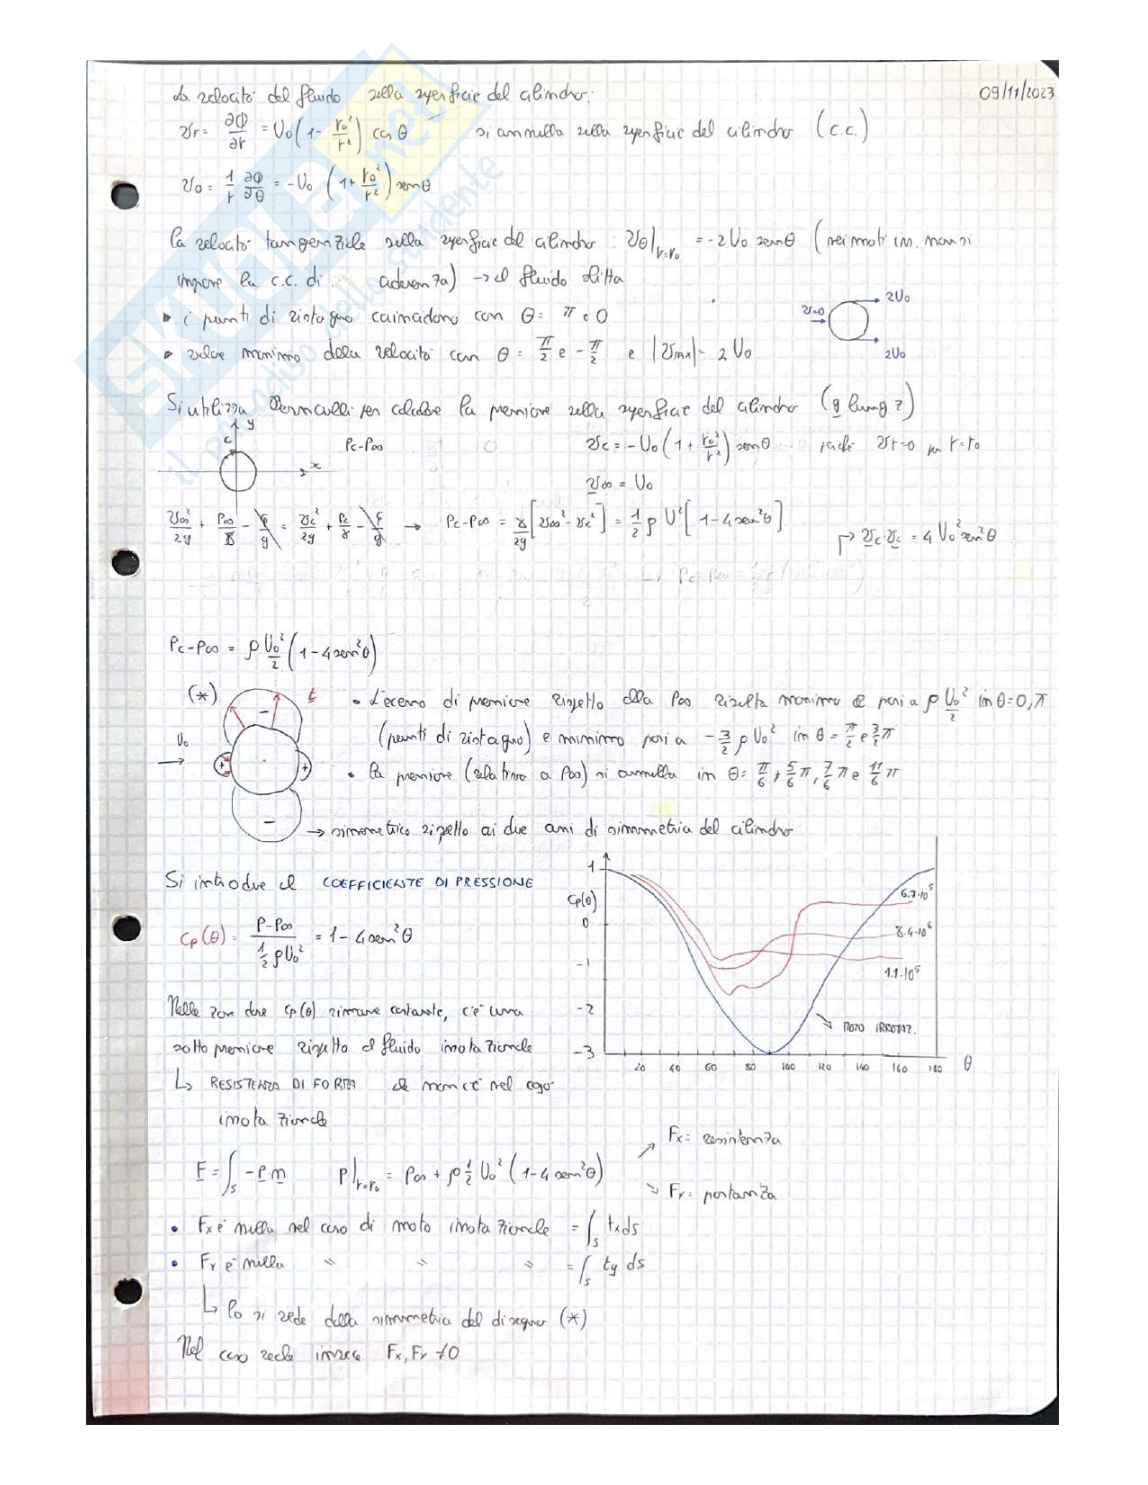 09/11/2023
La velocità del fluido sulla superficie del cilindro:
Vr = ∂Φ/∂r = U₀(1 - r₀²/r²) cosθ si annulla sulla superficie del cilindro (c.c.)
Vθ = 1/r ∂Φ/∂θ = -U₀ (1 + r₀²/r²) senθ
la velocità tangenziale sulla superficie del cilindro: Vθ|r=r₀ = -2U₀ senθ (nei moti irr. non si
impone la c.c. di aderenza) → il fluido slitta
• i punti di ristagno coincidono con θ = π e 0
• valore massimo della velocità con θ = π/2 e -π/2 e |Vmax| = 2U₀
V=0 2U₀
2U₀
Si utilizza Bernoulli per calcolare la pressione sulla superficie del cilindro (g lungo z)
y
c
x
Pc-P∞
Vc = -U₀(1 + r₀²/r²) senθ poiché Vr=0 per r=r₀
V∞ = U₀
V∞²/2g + P∞/γ - F/g = Vc²/2g + Pc/γ - F/g → Pc-P∞ = γ/2g [V∞² - Vc²] = 1/2 ρ U² [1-4sen²θ]
↱ Vc·Vc = 4U₀²sen²θ
Pc-P∞ = ρ U₀²/2 (1-4sen²θ)
(*)
t
U₀
- + + -
• L'eccesso di pressione rispetto alla P∞ risulta massimo e pari a ρ U₀²/2 in θ=0,π
(punti di ristagno) e minimo pari a -3/2 ρ U₀² in θ = π/2 e 3/2 π
• la pressione (relativa a P∞) si annulla in θ = π/6, 5/6 π, 7/6 π e 11/6 π
→ simmetrico rispetto ai due assi di simmetria del cilindro
Si introduce il COEFFICIENTE DI PRESSIONE
Cp(θ) = P-P∞ / 1/2 ρU₀² = 1-4sen²θ
Cp(θ)
1
0
-1
-2
-3
20 40 60 80 100 120 140 160 180 θ
6.7·10⁵
8.4·10⁶
1.1·10⁵
MOTO IRROTAZ.
Nelle zone dove Cp(θ) rimane costante, c'è una
sotto pressione rispetto al fluido irrotazionale
↳ RESISTENZA DI FORMA che non c'è nel caso
irrotazionale
F = ∫s -p n P|r=r₀ = P∞ + ρ 1/2 U₀² (1-4sen²θ)
↗ Fx = resistenza
↘ Fy = portanza
• Fx è nulla nel caso di moto irrotazionale = ∫s tx ds
• Fy è nulla " " " = ∫s ty ds
↳ lo si vede dalla simmetria del disegno (*)
Nel caso reale invece Fx, Fy ≠ 0
SKUOLA.net
il portale dello studente